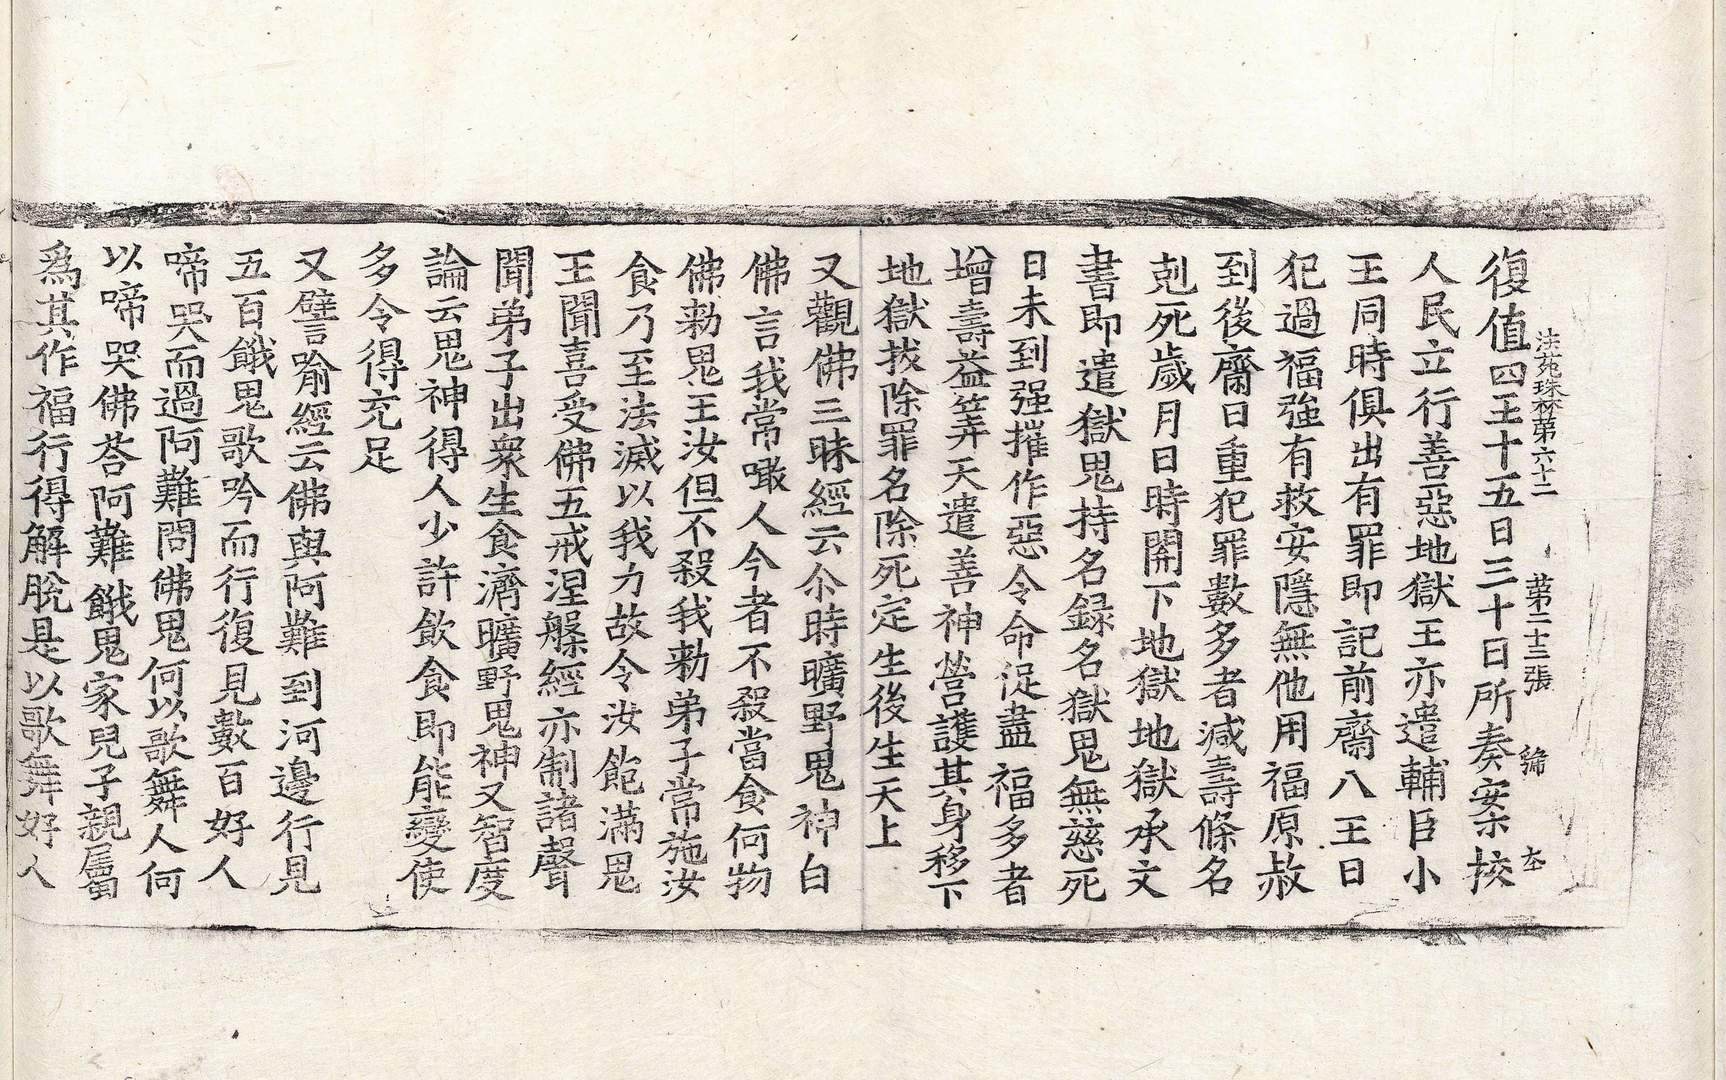 法苑珠林第六十二 第二十三張 綿 夲
復值四王十五日三十日所奏案挍
人民立行善惡地獄王亦遣輔臣小
王同時俱出有罪即記前齋八王日
犯過福強有救安隱無他用福原赦
到後齋日重犯罪數多者減壽條名
剋死歲月日時關下地獄地獄承文
書即遣獄鬼持名録名獄鬼無慈死
日未到强摧作惡令命促盡福多者
增壽益筭天遣善神營護其身移下
地獄拔除罪名除死定生後生天上
又觀佛三昧經云尒時曠野鬼神白
佛言我常噉人今者不殺當食何物
佛勑鬼王汝但不殺我勑弟子常施汝
食乃至法滅以我力故令汝飽滿鬼
王聞喜受佛五戒涅槃經亦制諸聲
聞弟子出衆生食濟曠野鬼神又智度
論云鬼神得人少許飲食即能變使
多令得充足
又譬喻經云佛與阿難到河邊行見
五百餓鬼歌吟而行復見數百好人
啼哭而過阿難問佛鬼何以歌舞人何
以啼哭佛荅阿難餓鬼家兒子親屬
爲其作福行得解脫是以歌舞好人